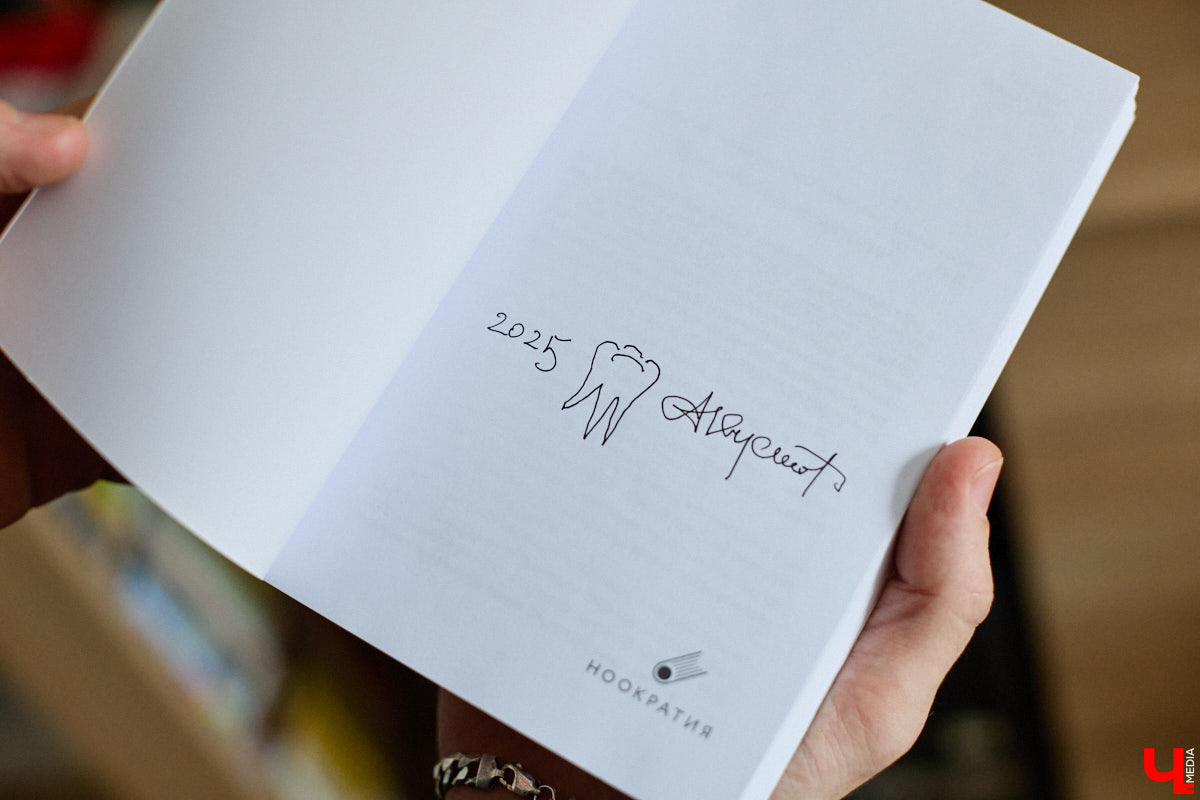 2025 Августов
НООКРАТИЯ
Ч MEDIA